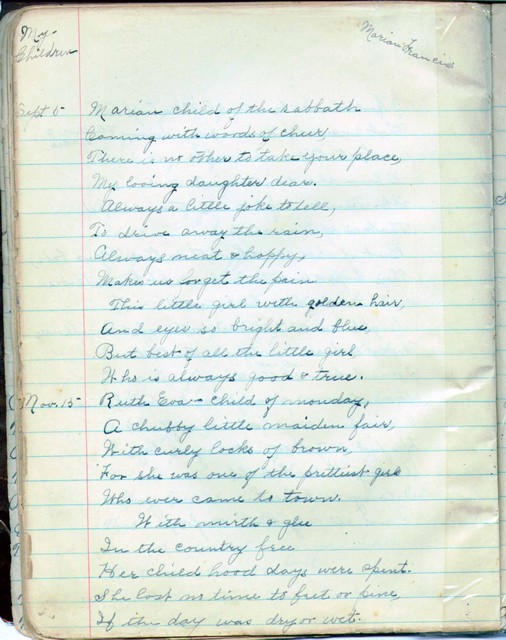 My
Children
Marian Francis
Sept 5
Marian child of the sabbath
Coming with words of cheer,
There is no other to take your place,
My loving daughter dear.
Always a little joke to tell,
To drive away the rain,
Always neat & happy,
Makes us forget the pain
This little girl with golden hair,
And eyes so bright and blue
But best of all the little girl
Who is always good & true.
Nov. 15 Ruth Eva - child of monday,
A chubby little maiden fair,
With curly locks of brown,
For she was one of the prittiest girls
Who ever came to town.
With mirth & glee
In the country free
Her child hood days were spent.
She lost no time to fret or pine,
If the day was dry or wet.